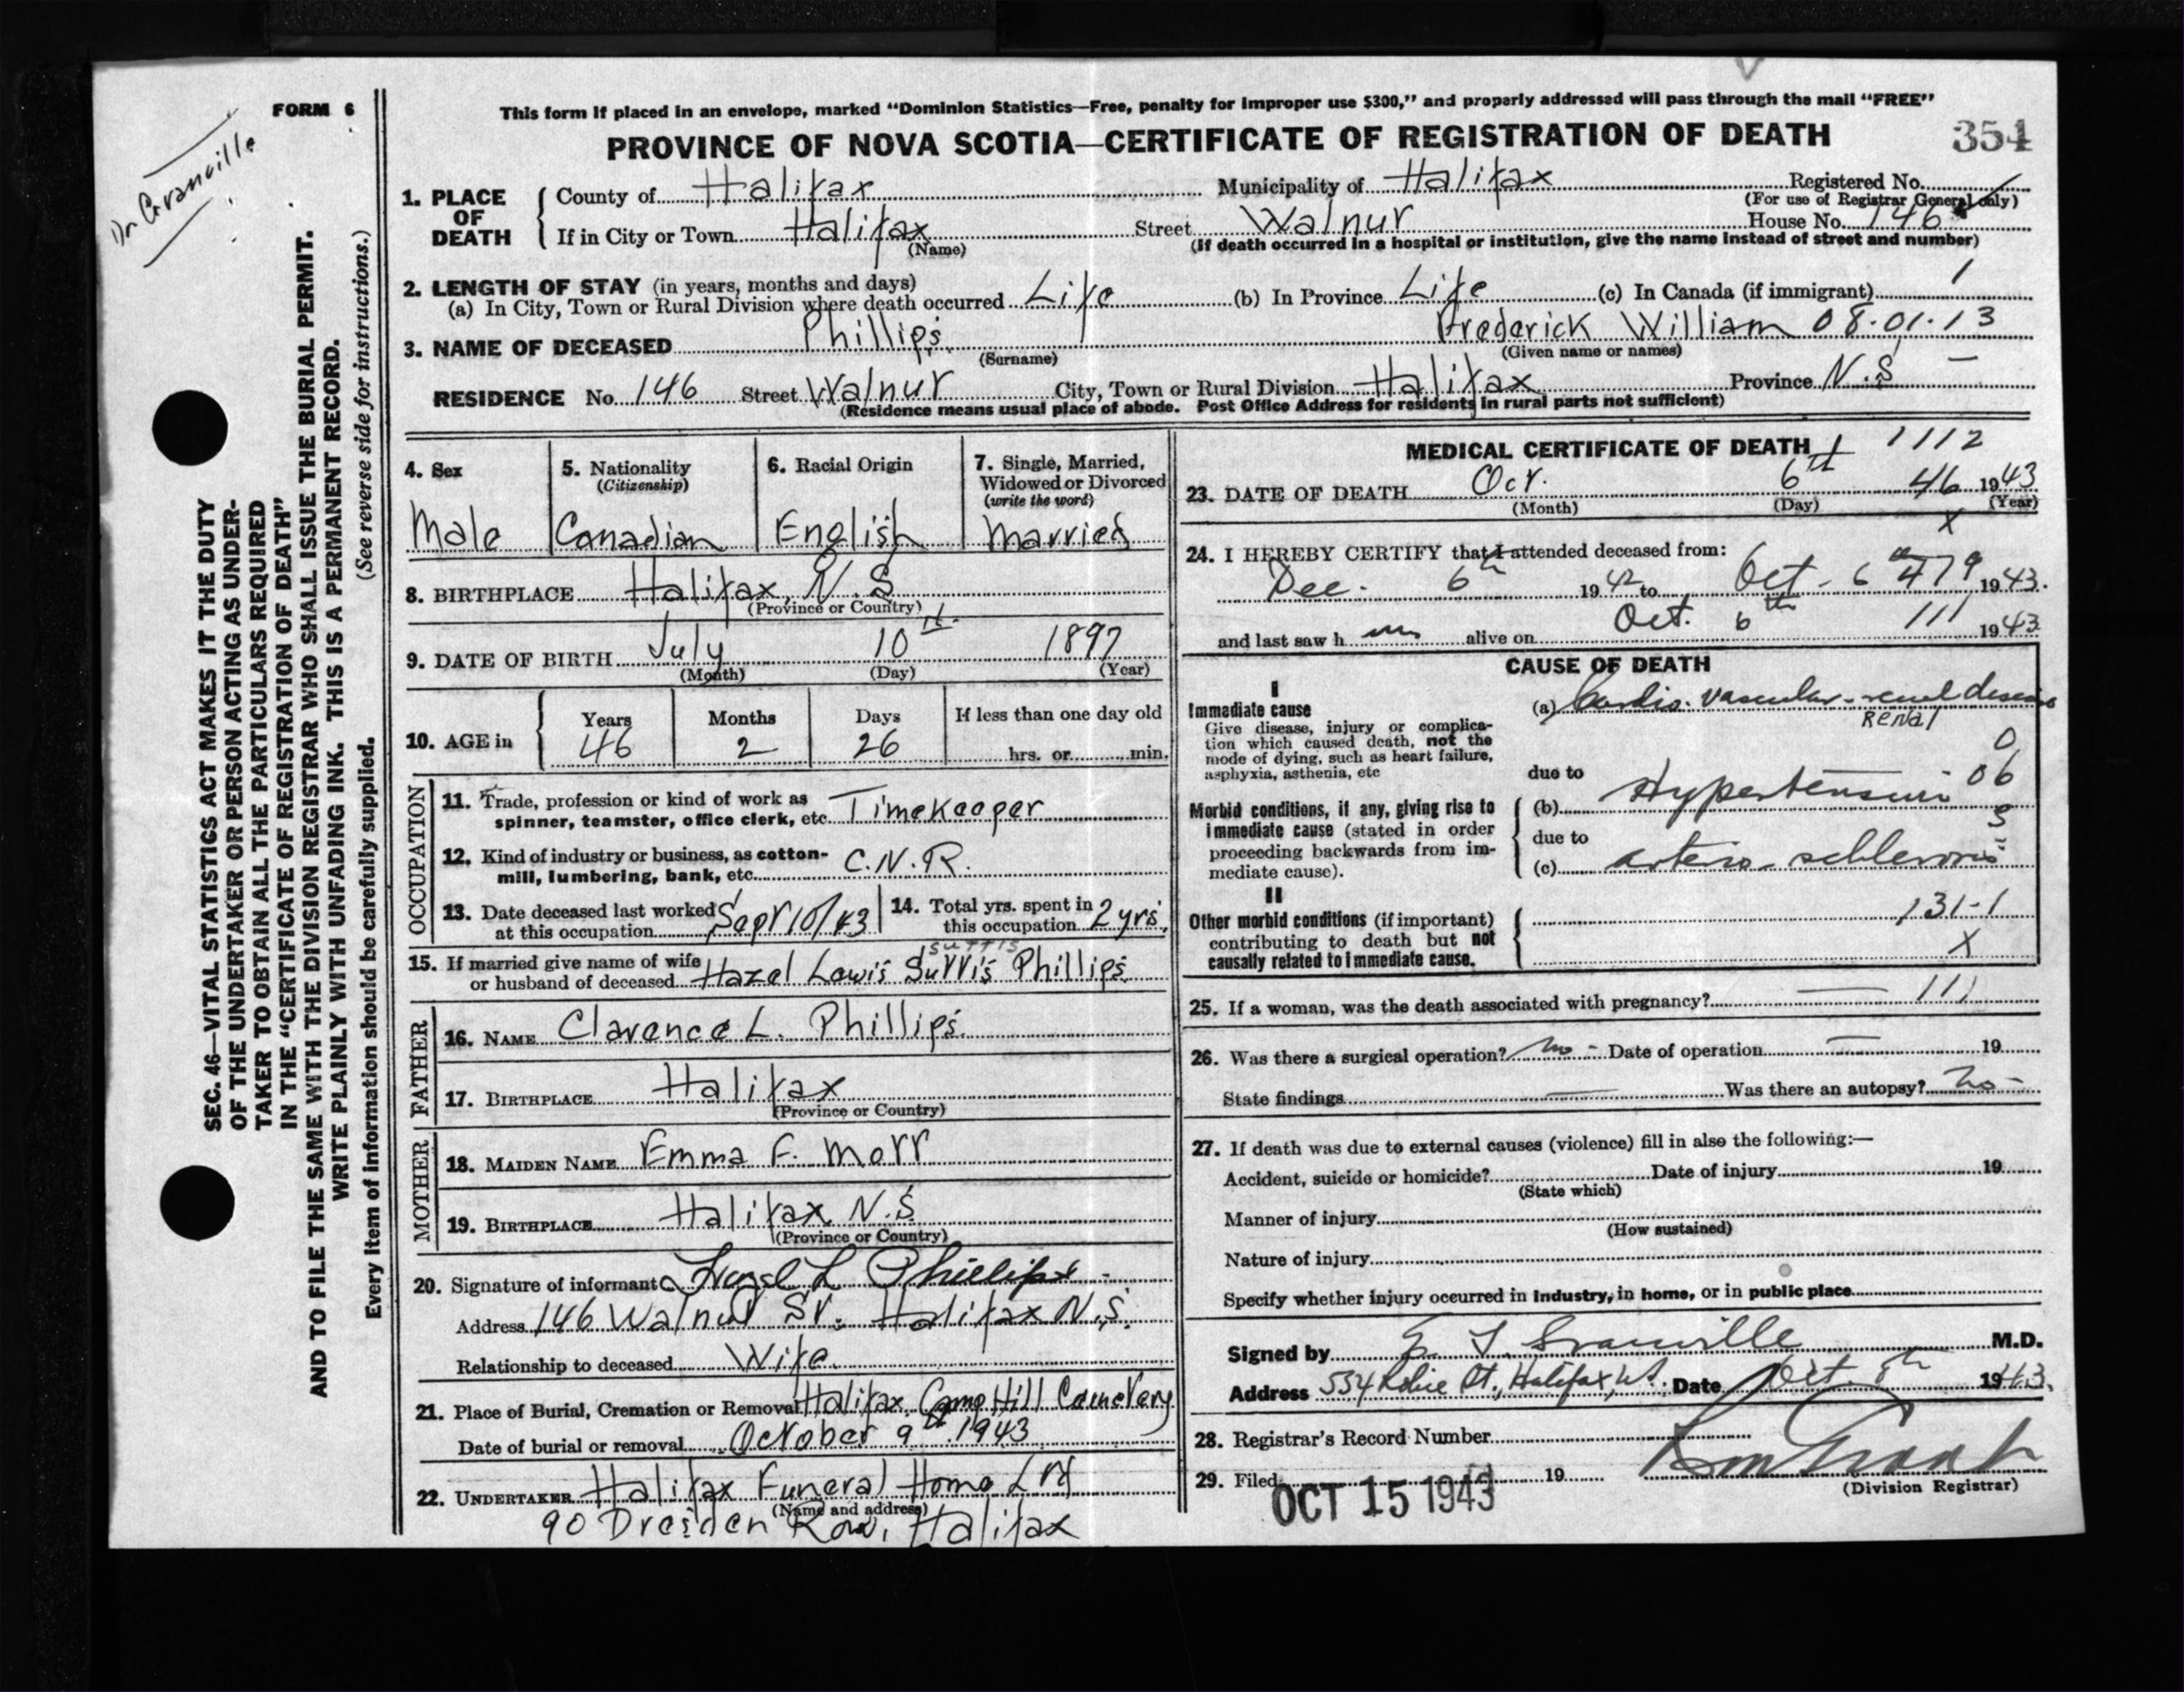 This form if placed in an envelope, marked "Dominion Statistics—Free, penalty for improper use $300," and properly addressed will pass through the mail "FREE"
FORM 6
PROVINCE OF NOVA SCOTIA—CERTIFICATE OF REGISTRATION OF DEATH
354
Dr Granville
SEC. 46—VITAL STATISTICS ACT MAKES IT THE DUTY
OF THE UNDERTAKER OR PERSON ACTING AS UNDER-
TAKER TO OBTAIN ALL THE PARTICULARS REQUIRED
IN THE "CERTIFICATE OF REGISTRATION OF DEATH"
AND TO FILE THE SAME WITH THE DIVISION REGISTRAR WHO SHALL ISSUE THE BURIAL PERMIT.
WRITE PLAINLY WITH UNFADING INK. THIS IS A PERMANENT RECORD.
Every item of information should be carefully supplied. (See reverse side for instructions.)
1. PLACE OF DEATH
County of Halifax Municipality of Halifax Registered No.
(For use of Registrar General only)
If in City or Town Halifax Street Walnut House No. 146
(Name) (If death occurred in a hospital or institution, give the name instead of street and number)
2. LENGTH OF STAY (in years, months and days)
(a) In City, Town or Rural Division where death occurred Life (b) In Province Life (c) In Canada (if immigrant) 1
3. NAME OF DECEASED Phillips Frederick William 08.01.13
(Surname) (Given name or names)
RESIDENCE No. 146 Street Walnut City, Town or Rural Division Halifax Province N.S
(Residence means usual place of abode. Post Office Address for residents in rural parts not sufficient)
4. Sex
Male
5. Nationality
(Citizenship)
Canadian
6. Racial Origin
English
7. Single, Married,
Widowed or Divorced
(write the word)
Married
8. BIRTHPLACE Halifax, N.S
(Province or Country)
9. DATE OF BIRTH July 10th 1897
(Month) (Day) (Year)
10. AGE in
Years Months Days If less than one day old
46 2 26 hrs. or min.
OCCUPATION
11. Trade, profession or kind of work as
spinner, teamster, office clerk, etc. Timekeeper
12. Kind of industry or business, as cotton-
mill, lumbering, bank, etc. C.N.R.
13. Date deceased last worked
at this occupation Sept 10/43
14. Total yrs. spent in
this occupation 2 yrs.
suttis
15. If married give name of wife
or husband of deceased Hazel Lewis Suttis Phillips
FATHER
16. NAME Clarence L. Phillips
17. BIRTHPLACE Halifax
(Province or Country)
MOTHER
18. MAIDEN NAME Emma F. Mott
19. BIRTHPLACE Halifax N.S
(Province or Country)
20. Signature of informant Hazel L Phillips
Address 146 Walnut St. Halifax N.S.
Relationship to deceased Wife
21. Place of Burial, Cremation or Removal Halifax, Camp Hill Cemetery
Date of burial or removal October 9th 1943
22. UNDERTAKER Halifax Funeral Home Ltd
(Name and address)
90 Dresden Row, Halifax
MEDICAL CERTIFICATE OF DEATH 1112
23. DATE OF DEATH Oct. 6th 46 1943
(Month) (Day) (Year)
X
24. I HEREBY CERTIFY that I attended deceased from:
Dec. 6th 1942 to Oct. 6th 479 1943.
and last saw h im alive on Oct. 6th 111 1943
CAUSE OF DEATH
I
Immediate cause
Give disease, injury or complica-
tion which caused death, not the
mode of dying, such as heart failure,
asphyxia, asthenia, etc
(a) Cardio-vascular-renal disease
Renal
0
due to
06
Morbid conditions, if any, giving rise to
immediate cause (stated in order
proceeding backwards from im-
mediate cause).
(b) Hypertension
due to
(c) arterio-schlerosis
II
Other morbid conditions (if important)
contributing to death but not
causally related to immediate cause.
131-1
X
25. If a woman, was the death associated with pregnancy? — 111
26. Was there a surgical operation? no - Date of operation — 19
State findings — Was there an autopsy? no -
27. If death was due to external causes (violence) fill in also the following:—
Accident, suicide or homicide? Date of injury 19
(State which)
Manner of injury
(How sustained)
Nature of injury
Specify whether injury occurred in industry, in home, or in public place
Signed by Granville M.D.
Address 554 Robie St., Halifax, Date Oct. 8th 1943.
28. Registrar's Record Number
29. Filed 19
OCT 15 1943
(Division Registrar)